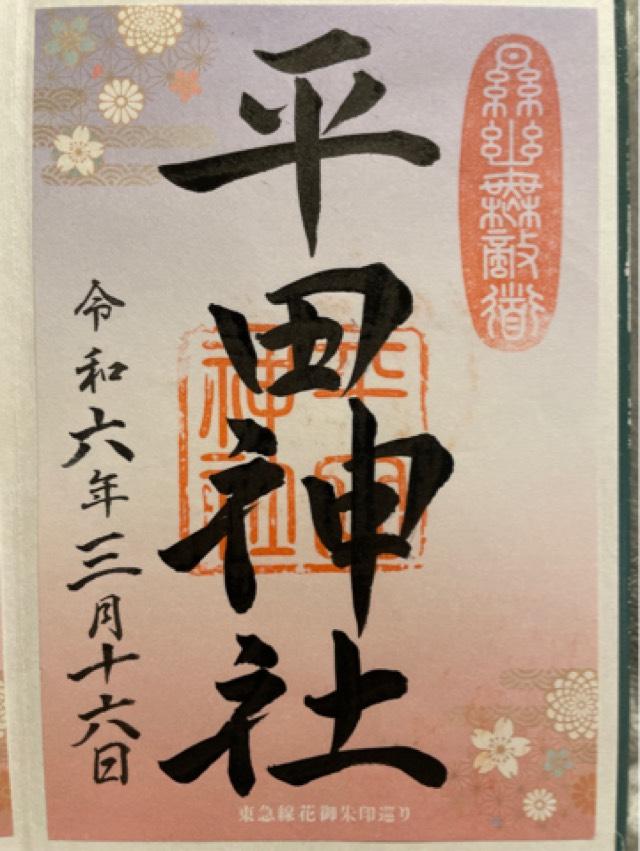 㬎幽無敵道
平田神社
平田
神社
令和六年三月十六日
東急線花御朱印巡り